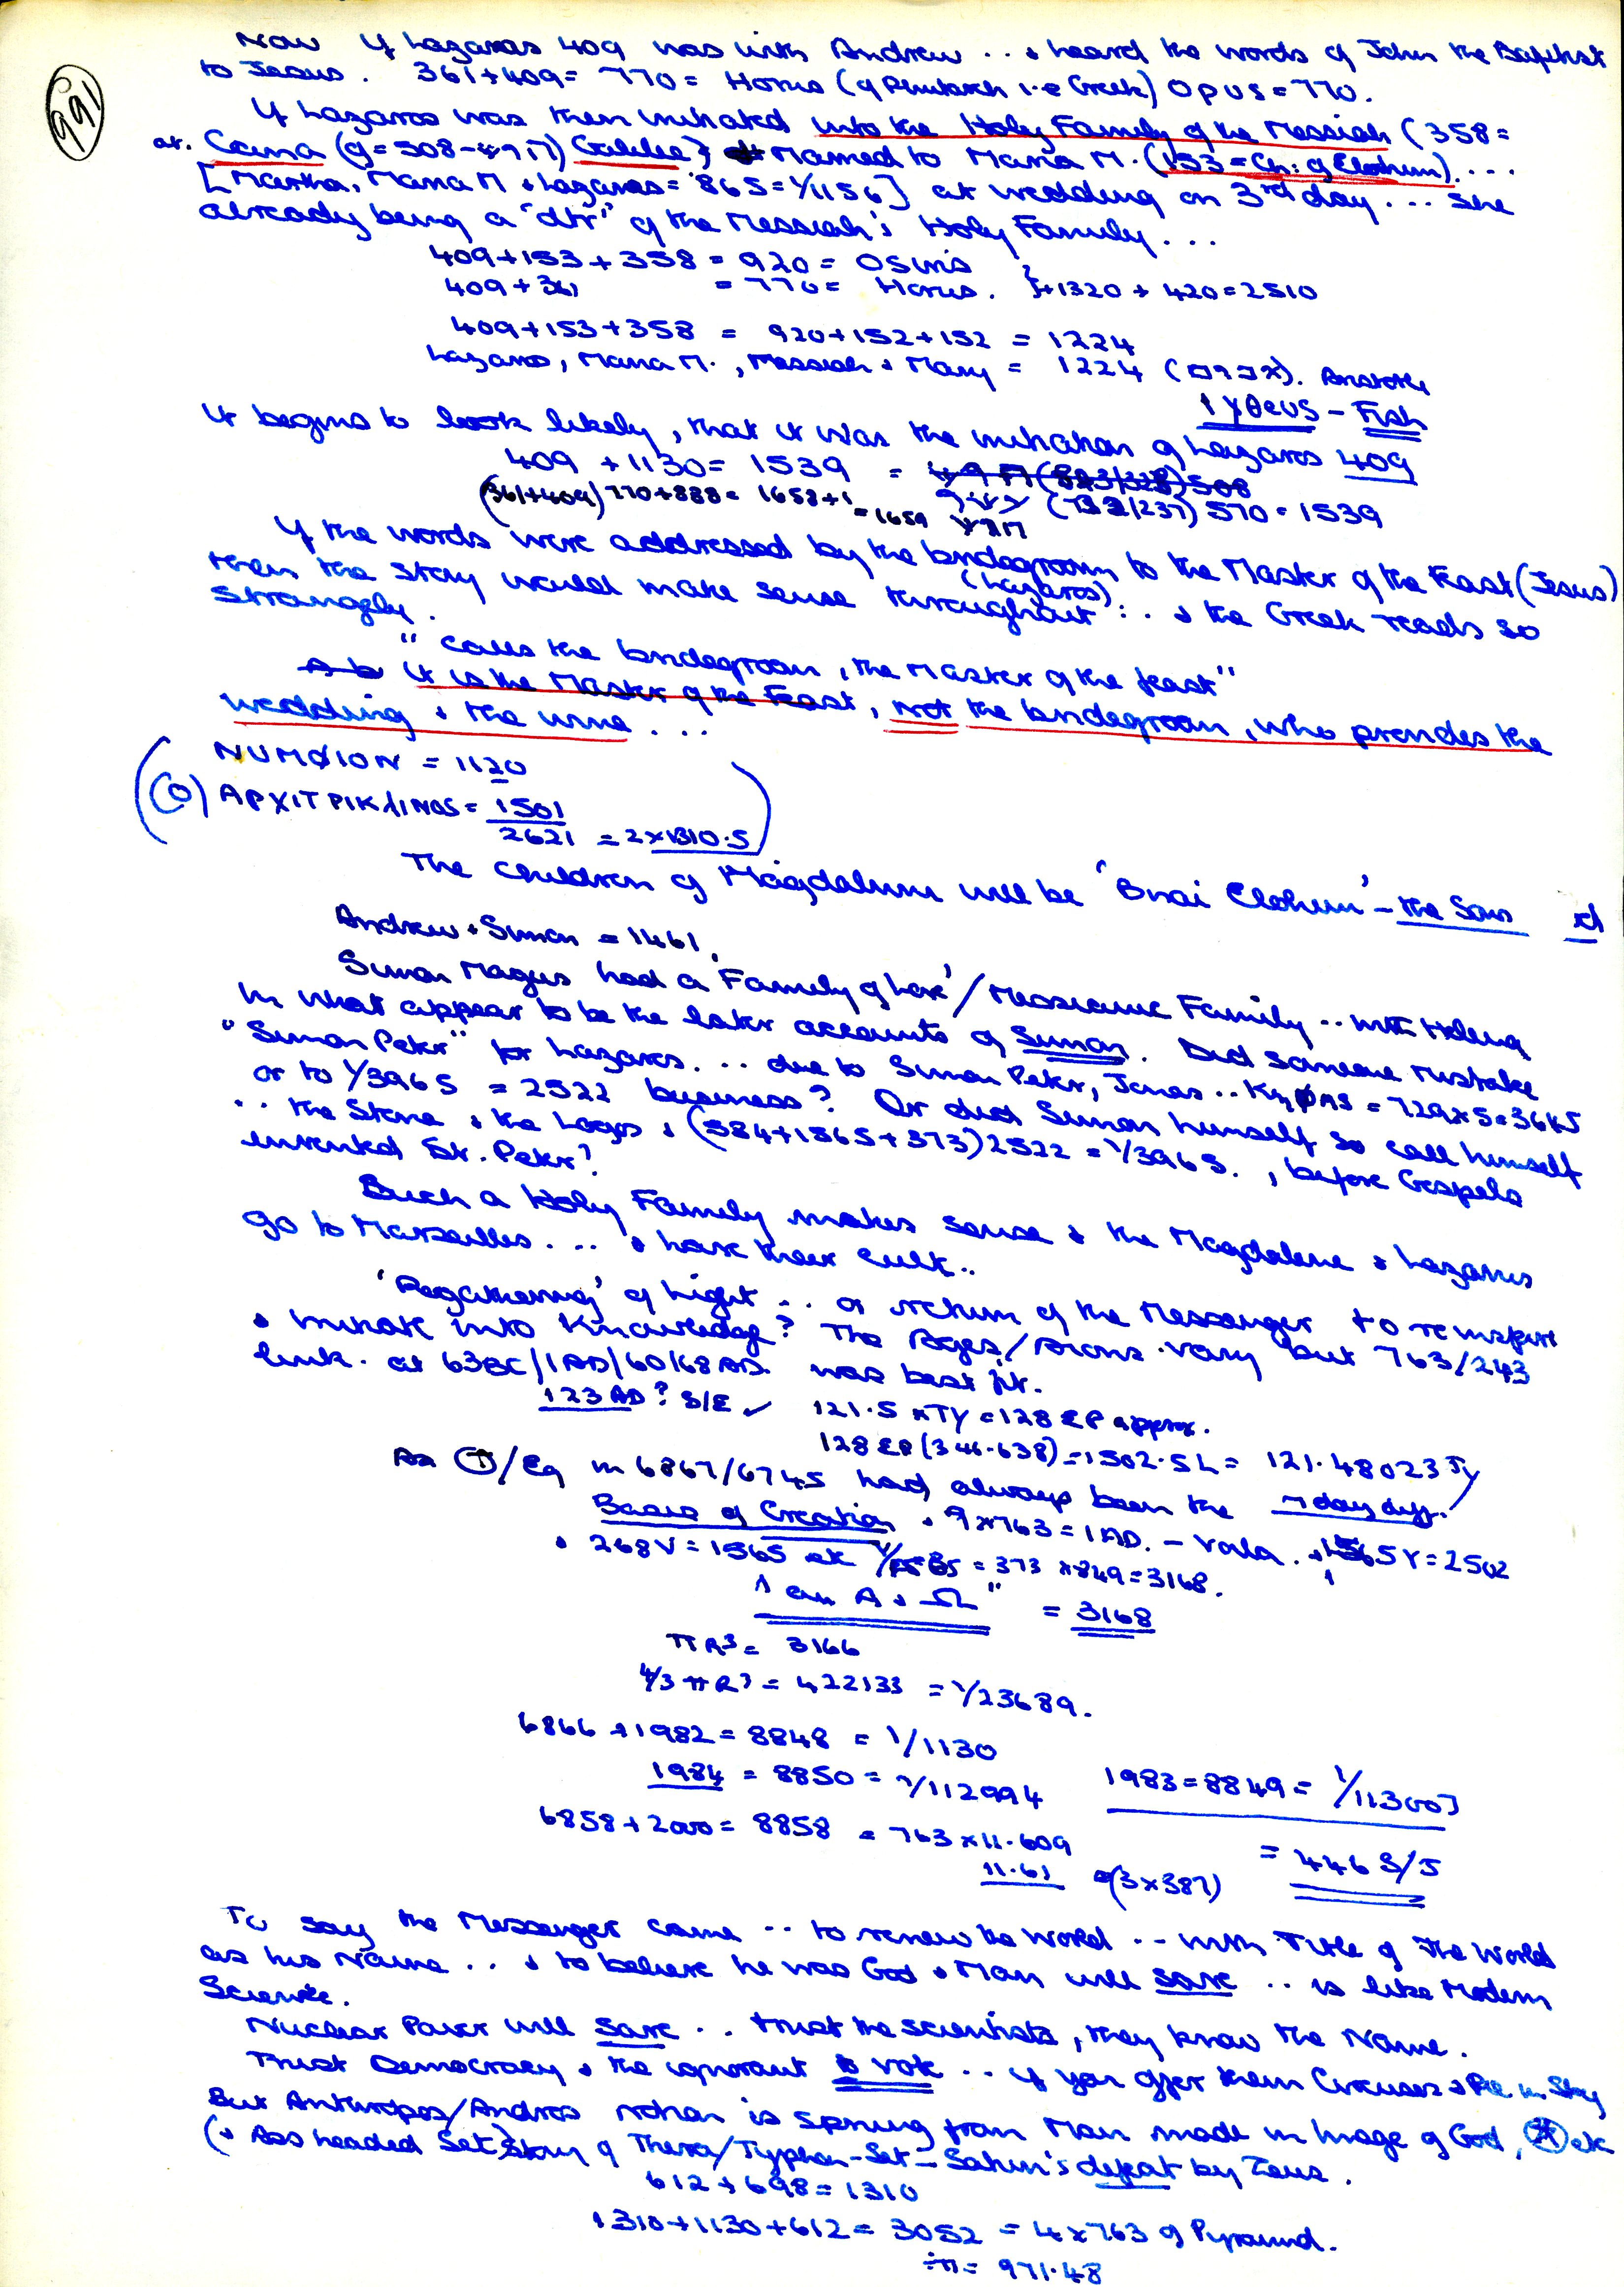 991
Now if Lazaros 409 was with Andrew ... & heard the words of John the Baptist
to Jesus. 361+409= 770 = Horus (of Plutarch i.e Greek) Opus = 770.
If Lazaros was then initiated into the Holy Family of the Messiah (358 =
at. Cana (of = 508 - Galilee) married to Maria M. (153 = Ch: of Elohim) ....
[Martha, Maria M & Lazaros = 865 = 1/1156] at wedding on 3rd day ... She
already being a "dtr" of the Messiah's Holy Family ...
409+153+358 = 920 = Osiris
409 + 361 = 770 = Horus. }+1320 + 420 = 2510
409+153+358 = 920+152+152 = 1224
Lazaros, Maria M., Messiah & Mary = 1224
ιχθευs - Fish
It begins to look likely, that it was the initiation of Lazaros 409
409 + 1130 = 1539 =
(361+409) 770+888 = 1658+1 = 1659 (732/237) 570 = 1539
If the words were addressed by the bridegroom to the Master of the Feast (Jesus)
(Lazaros)
then the story would make sense throughout ... & the Greek reads so
strangely.
"calls the bridegroom, the Master of the feast"
It is the Master of the Feast, not the bridegroom, who provides the
wedding & the wine ...
NUMΦION = 1120
(O) APXITPIKLINOS = 1501
2621 = 2×1310.5
The children of Magdalum will be 'Bnai Elohim' - the Sons of
Andrew & Simon = 1461.
Simon Magus had a 'Family of Love' / Messianic Family .. with Helena
in what appear to be the later accounts of Simon. Did someone mistake
"Simon Peter" for Lazaros ... due to Simon Peter, Jonas .. KηΦAS = 729×5=3645
or to 1/3965 = 2522 business? Or did Simon himself so call himself
.. the Stone & the Logos & (584+1565+373) 2522 = 1/3965., before Gospels
invented St. Peter?
Such a Holy Family makes sense & the Magdalene & Lazarus
go to Marseilles .... & have their cult..
'Regathering' of Light ... or return of the Messenger to reinspire
& initiate into Knowledge? The Ages/Aeons vary but 763/243
link. at 63BC/1AD/60/68AD. was best fit.
123 AD? S/E ✓ 121.5 × TY = 128 EP approx.
128 EP (346.638) = 1502.5 L = 121.48023 Jy
As /Eq in 6867/6745 had always been the 7 day diff.
Basis of Creation & 9×763 = 1 AD. - Vala.
& 268V = 1565 etc = 373 ×849=3168.
"I am A & Ω" = 3168
πR³ = 3166
4/3 πR³ = 422133 = 1/23689.
6866 + 1982 = 8848 = 1/1130
1984 = 8850 = 1/112994
1983 = 8849 = 1/113007
6858 + 2000 = 8858 = 763 × 11.609
11.61 = (3×387)
= 446 S/J
To say the Messenger came .. to renew the World .. with Title of The World
as his Name .. & to believe he was God & Man will save .. is like Modern
Science.
Nuclear Power will save .. trust the scientists, they know the Name.
Trust Democracy & the ignorant to vote .. if you offer them Circuses & Pie in Sky
But Anthropos/Andros is sprung from Man made in Image of God, etc
(& Ass headed Set) Story of Thera/Typhon-Set - Saturn's defeat by Zeus.
612 + 698 = 1310
1310 + 1130 + 612 = 3052 = 4×763 of Pyramid.
÷π = 971.48